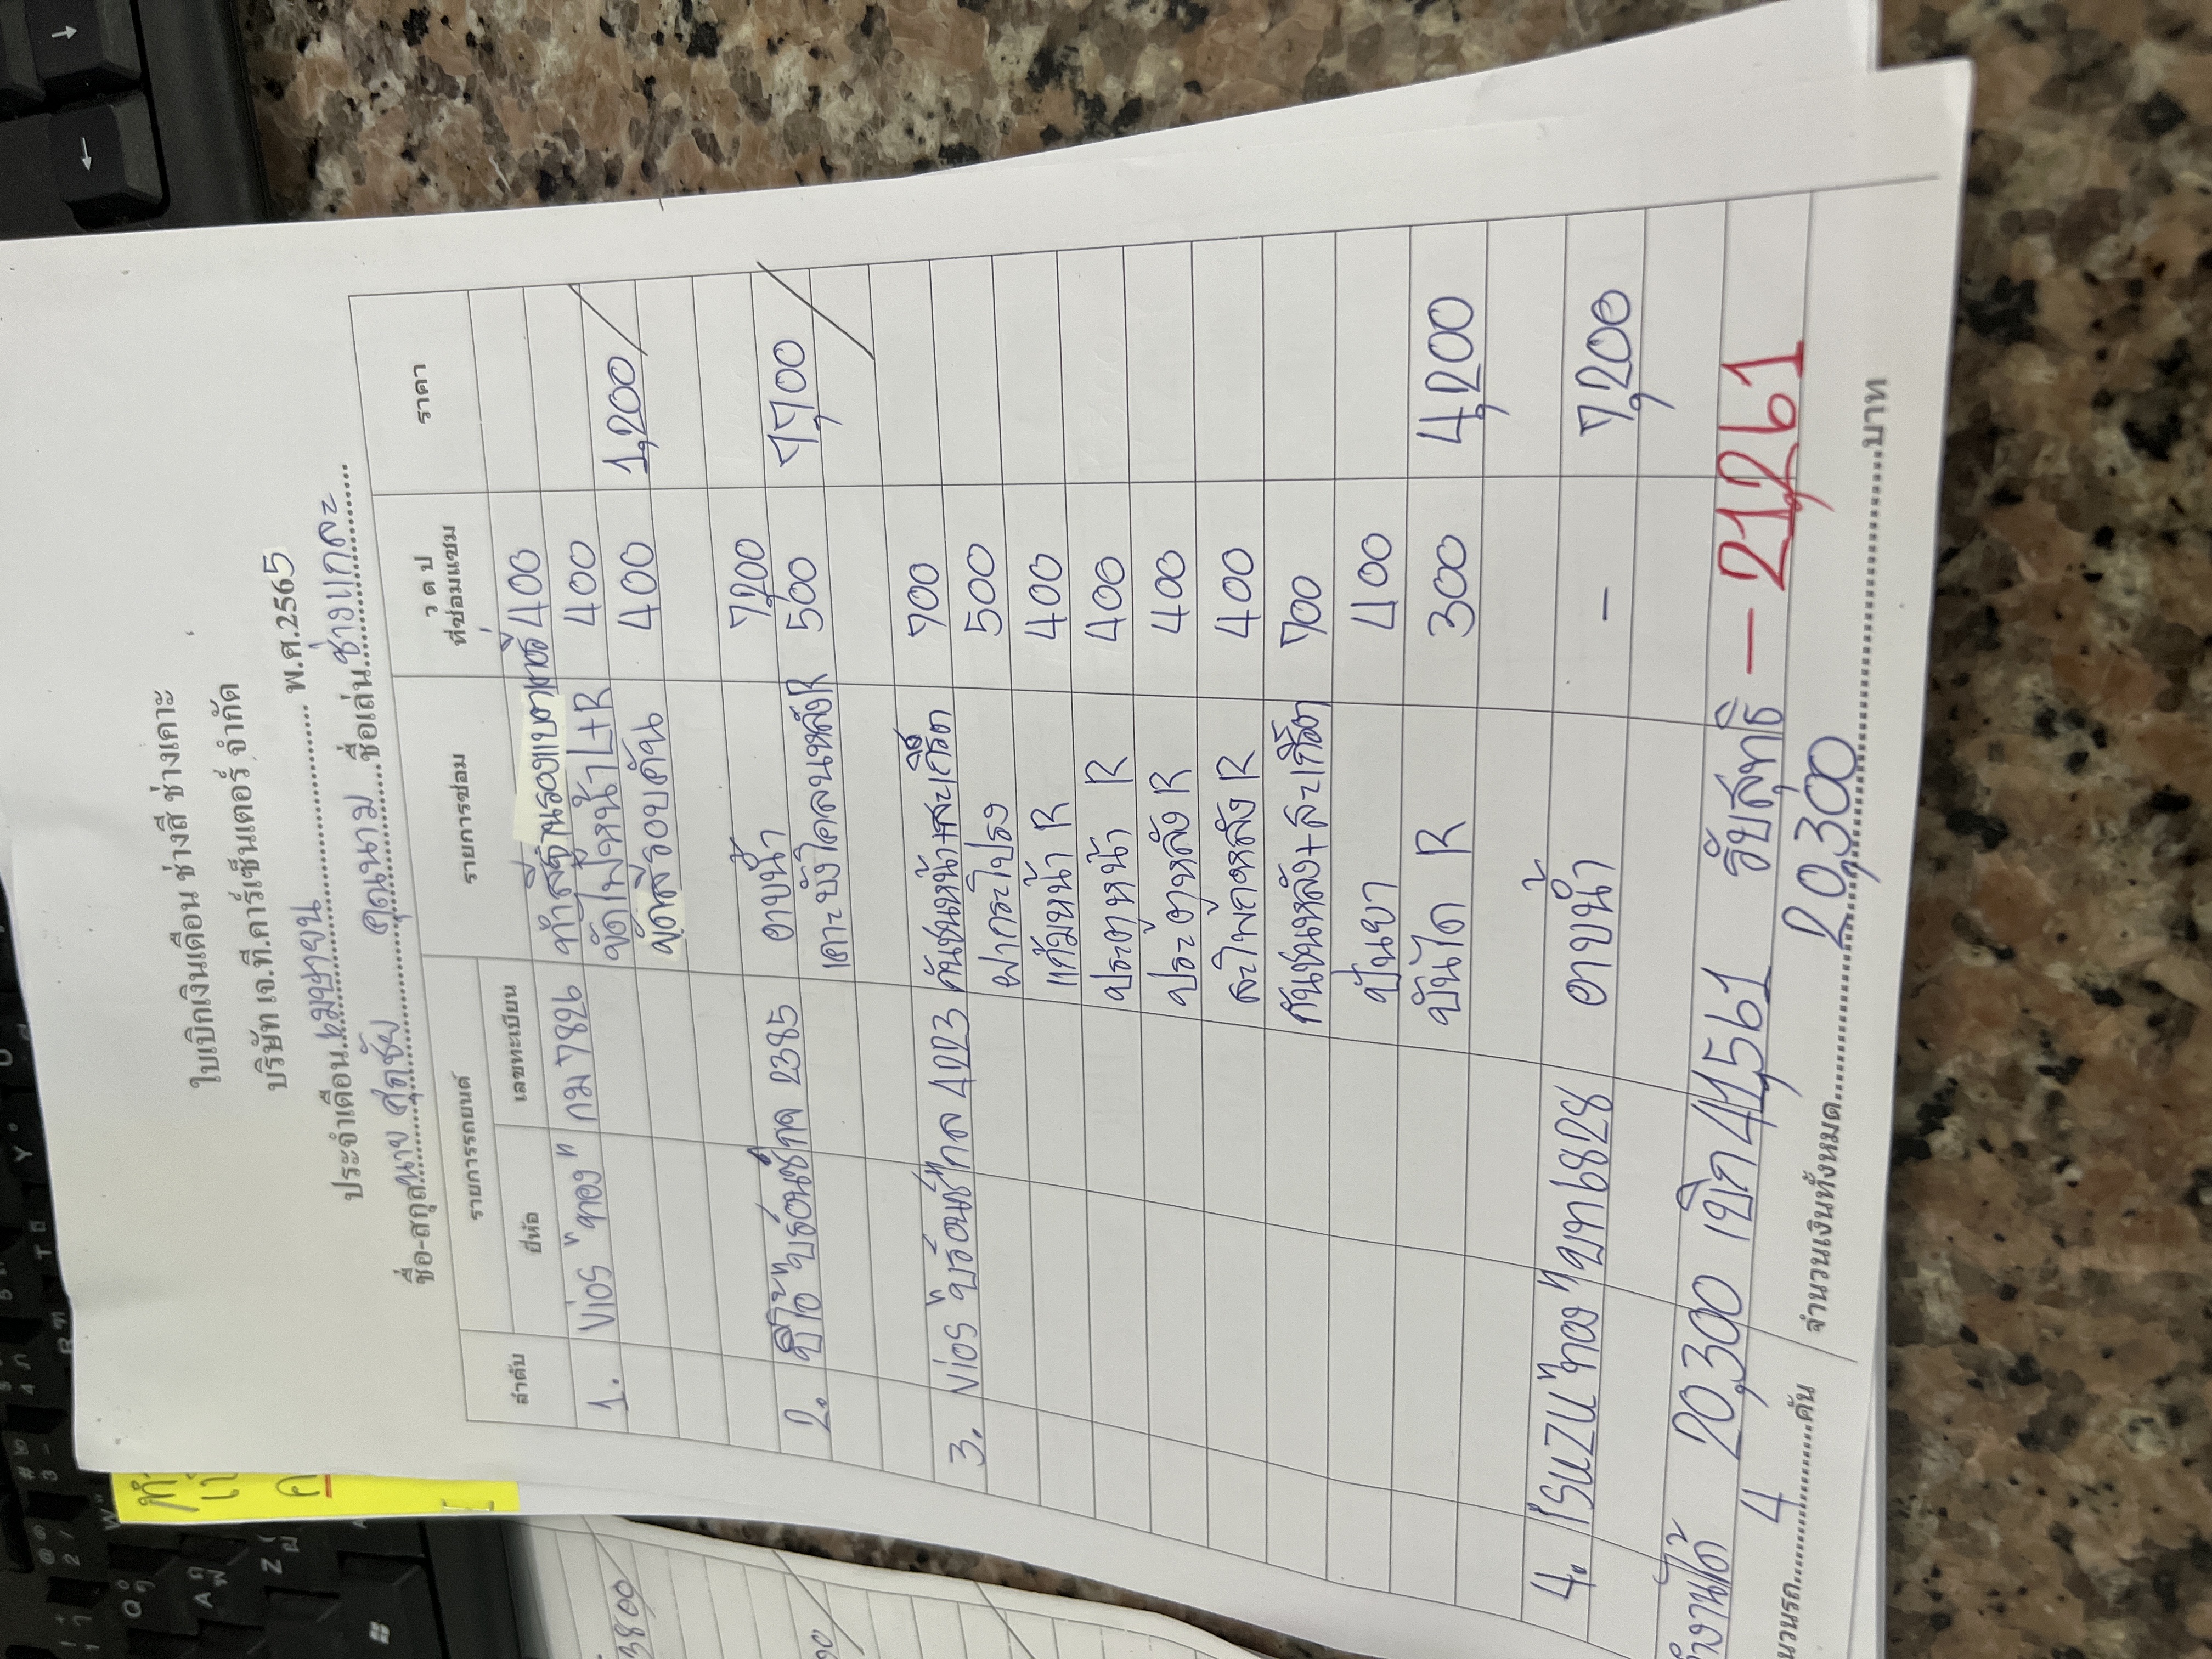 ใบเบิกเงินเดือน ช่างสี ช่างเคาะ
บริษัท เจ.ที.คาร์เซ็นเตอร์ จำกัด
ประจำเดือน เมษายน พ.ศ.2565
ชื่อ-สกุล นาย ศุภชัย คุณนาม ชื่อเล่น ช่างแกละ
ลำดับ รายการรถยนต์ รายการซ่อม ว ด ป ที่ซ่อมแซม ราคา
ยี่ห้อ เลขทะเบียน
1. Vios "ทอง" กม 7826 ทำสีฐานรองแบตเตอรี่ 400
ขัดไฟหน้า L+R 400
ขัดสีรอบคัน 400 1,200
2. วีโก้ "บรอนซ์" กจ 2385 อาบน้ำ 7,200
เคาะบังโคลนหลัง R 500 7,700
3. Vios "บรอนซ์" กล 4223 กันชนหน้า+สเกิร์ต 700
ฝากระโปรง 500
แก้มหน้า R 400
ประตูหน้า R 400
ประตูหลัง R 400
สะโพกหลัง R 400
กันชนหลัง+สะเกิ๊ต 700
ปั้นยา 400
บันได R 300 4,200
4. ISUZU "ทอง" บท 8828 อาบน้ำ - 7,200
20,300 เบิก 41,561 รับสุทธิ - 21,261
จำนวนรถ 4 คัน จำนวนเงินทั้งหมด 20,300 บาท
3800